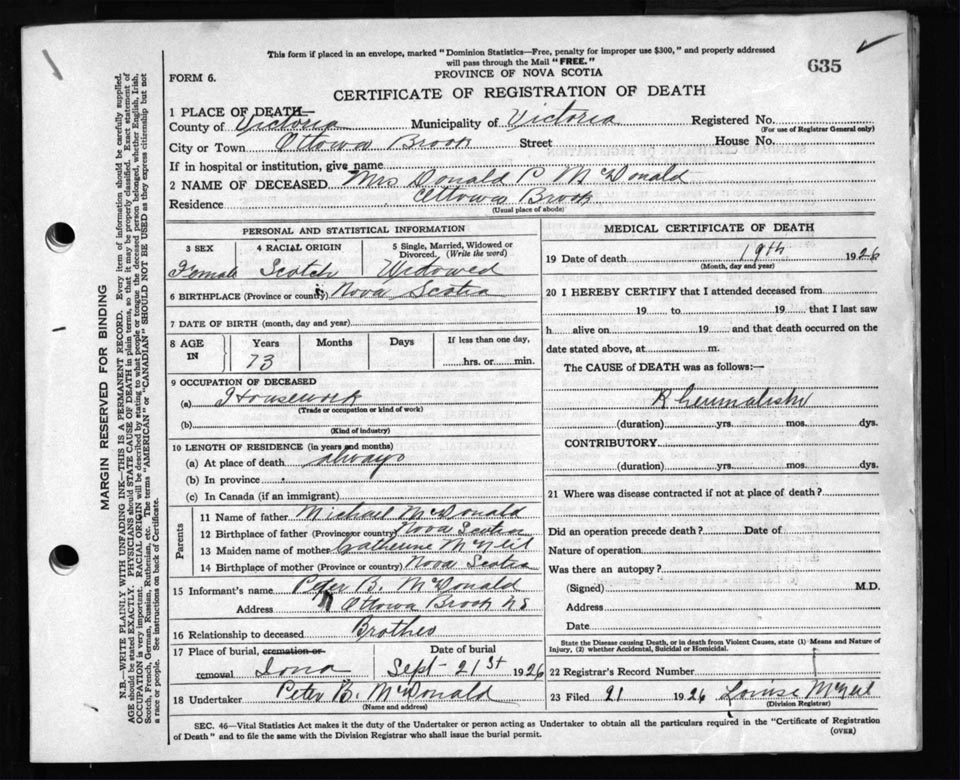 This form if placed in an envelope, marked "Dominion Statistics—Free, penalty for improper use $300," and properly addressed
will pass through the Mail "FREE."
635
FORM 6.
PROVINCE OF NOVA SCOTIA
CERTIFICATE OF REGISTRATION OF DEATH
1 PLACE OF DEATH—
County of Victoria Municipality of Victoria Registered No.
(For use of Registrar General only)
City or Town Ottowa Brook Street House No.
If in hospital or institution, give name
2 NAME OF DECEASED Mrs Donald P McDonald
Residence Ottowa Brook
(Usual place of abode)
PERSONAL AND STATISTICAL INFORMATION
3 SEX 4 RACIAL ORIGIN 5 Single, Married, Widowed or
Divorced. (Write the word)
Female Scotch Widowed
6 BIRTHPLACE (Province or country) Nova Scotia
7 DATE OF BIRTH (month, day and year)
8 AGE IN Years Months Days If less than one day,
73 hrs. or min.
9 OCCUPATION OF DECEASED
(a) Housework
(Trade or occupation or kind of work)
(b)
(Kind of industry)
10 LENGTH OF RESIDENCE (in years and months)
(a) At place of death always
(b) In province
(c) In Canada (if an immigrant)
Parents
11 Name of father Michael McDonald
12 Birthplace of father (Province or country) Nova Scotia
13 Maiden name of mother Catherine McNeil
14 Birthplace of mother (Province or country) Nova Scotia
15 Informant's name Peter B. McDonald
Address Ottowa Brook NS
16 Relationship to deceased Brother
17 Place of burial, cremation or Date of burial
removal Iona Sept - 21st 1926
18 Undertaker Peter B. McDonald
(Name and address)
MEDICAL CERTIFICATE OF DEATH
19 Date of death 19th 1926
(Month, day and year)
20 I HEREBY CERTIFY that I attended deceased from
19 to 19 that I last saw
h alive on 19 and that death occurred on the
date stated above, at m.
The CAUSE of DEATH was as follows:—
(duration) yrs. mos. dys.
CONTRIBUTORY
(duration) yrs. mos. dys.
21 Where was disease contracted if not at place of death?
Did an operation precede death? Date of
Nature of operation
Was there an autopsy?
(Signed) M.D.
Address
Date
State the Disease causing Death, or in death from Violent Causes, state (1) Means and Nature of
Injury, (2) whether Accidental, Suicidal or Homicidal.
22 Registrar's Record Number
23 Filed 21 1926 Louise McNeil
(Division Registrar)
SEC. 46—Vital Statistics Act makes it the duty of the Undertaker or person acting as Undertaker to obtain all the particulars required in the "Certificate of Registration
of Death" and to file the same with the Division Registrar who shall issue the burial permit.
(OVER)
MARGIN RESERVED FOR BINDING
N.B.—WRITE PLAINLY WITH UNFADING INK—THIS IS A PERMANENT RECORD. Every item of information should be carefully supplied.
AGE should be stated EXACTLY. PHYSICIANS should STATE CAUSE OF DEATH in plain terms, so that it may be properly classified. Exact statement of
OCCUPATION is very important. RACIAL ORIGIN will be described by stating to what people or tongue the deceased person belonged, whether English, Irish,
Scotch, French, German, Russian, Ruthenian, etc. The terms "AMERICAN" or "CANADIAN" SHOULD NOT BE USED as they express citizenship but not
a race or people. See instructions on back of Certificate.